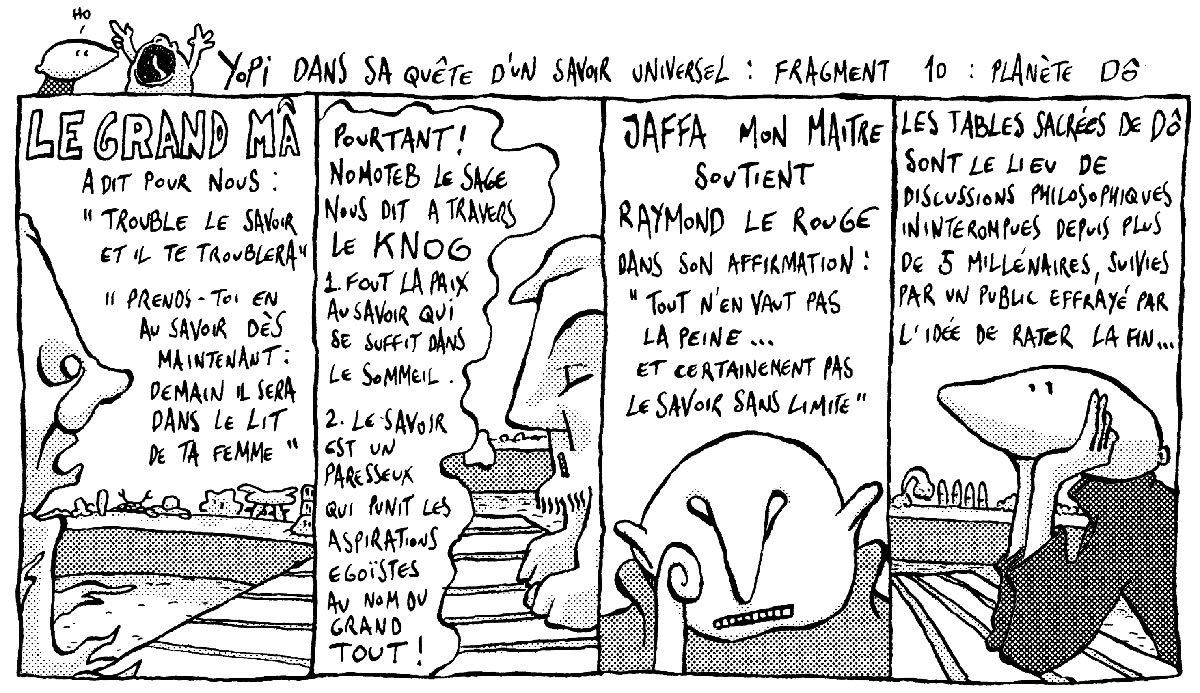 HO
YOPI DANS SA QUÊTE D'UN SAVOIR UNIVERSEL : FRAGMENT 10 : PLANÈTE DÔ
LE GRAND MÂ
A DIT POUR NOUS :
" TROUBLE LE SAVOIR
ET IL TE TROUBLERA"
" PRENDS-TOI EN
AU SAVOIR DÈS
MAINTENANT :
DEMAIN IL SERA
DANS LE LIT
DE TA FEMME "
POURTANT !
NOMOTEB LE SAGE
NOUS DIT A TRAVERS
LE KNOG
1. FOUT LA PAIX
AU SAVOIR QUI
SE SUFFIT DANS
LE SOMMEIL.
2. LE SAVOIR
EST UN
PARESSEUX
QUI PUNIT LES
ASPIRATIONS
EGOÏSTES
AU NOM DU
GRAND
TOUT !
JAFFA MON MAITRE
SOUTIENT
RAYMOND LE ROUGE
DANS SON AFFIRMATION :
" TOUT N'EN VAUT PAS
LA PEINE ...
ET CERTAINEMENT PAS
LE SAVOIR SANS LIMITE"
LES TABLES SACRÉES DE DÔ
SONT LE LIEU DE
DISCUSSIONS PHILOSOPHIQUES
ININTEROMPUES DEPUIS PLUS
DE 5 MILLÉNAIRES, SUIVIES
PAR UN PUBLIC EFFRAYÉ PAR
L'IDÉE DE RATER LA FIN...